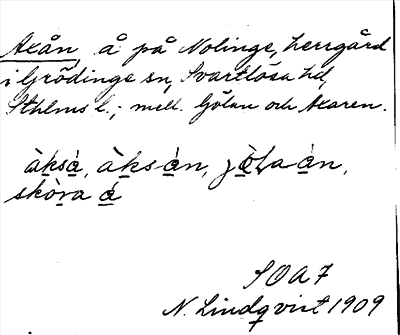 Axån, å på Nolinge, herrgård
i Grödinge sn, Svartlösa hd,
Sthlms l.; mell. Gölan och Axaren.
àksȧ, àksȧn, jö̀ɫa ȧn,
skòra ȧ
SOA 7
N. Lindqvist 1909